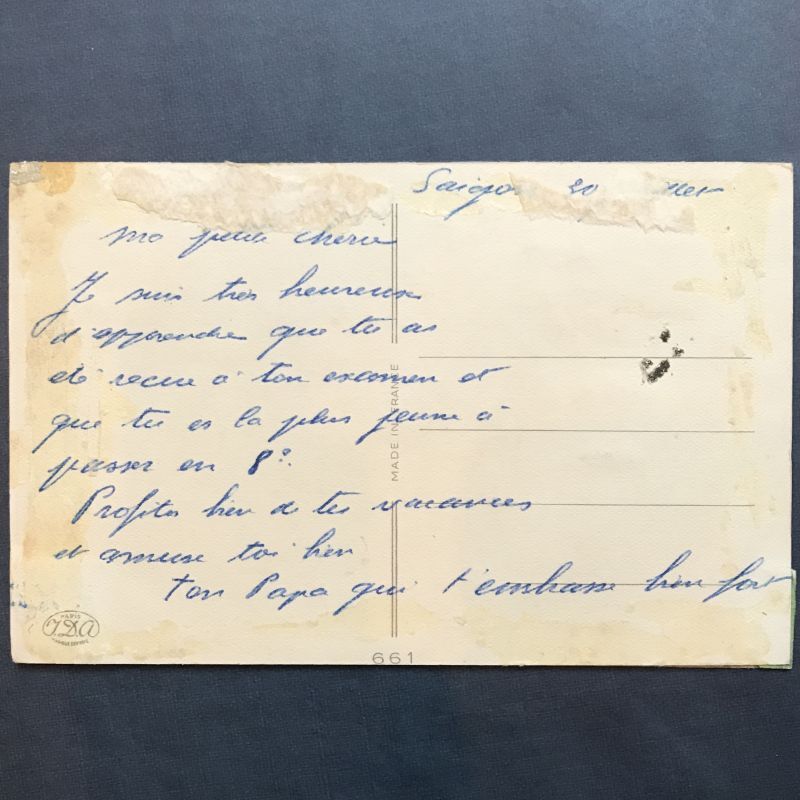 Saigon 20
ma petite cherie
Je suis très heureux
d'apprendre que tu as
été recue à ton examen et
que tu es la plus jeune à
passer en 8e.
Profites bien de tes vacances
et amuse toi bien
ton Papa qui t'embrasse bien fort
MADE IN FRANCE
PARIS
J.D.A
661